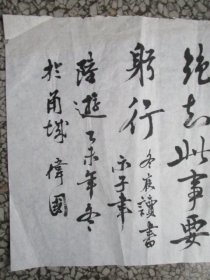 绝知此事要
躬行 冬夜讀書
示子聿
陸遊 乙未年冬
於甬城 偉國